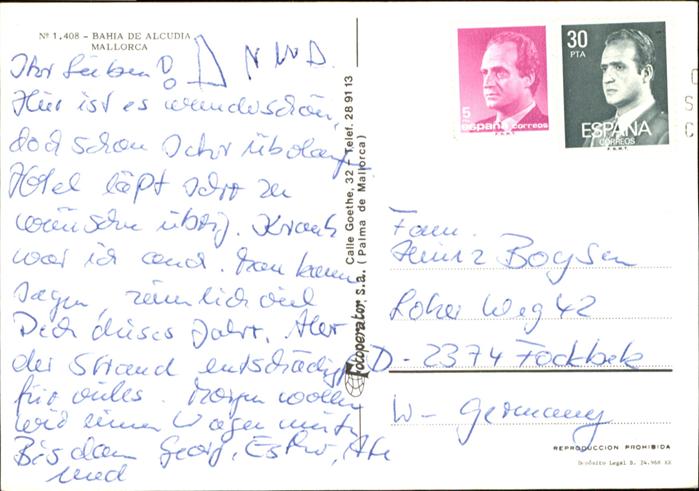 Nº 1.408 – BAHIA DE ALCUDIA
MALLORCA
Ihr Lieben!
Hier ist es wunderschön,
doch schon sehr überlaufen
Hotel läßt sehr zu
wünschen übrig. Krank
war ich auch. Man kann
sagen, ziemlich viel
Pech dieses Jahr. Aber
der Strand entschädigt
für vieles. Morgen wollen
wir einen Wagen mieten
Bis dann Georg, Esther,
und
Fotoperator, s.a. Calle Goethe, 32 - Telef. 28 91 13
(Palma de Mallorca)
5
PTA
españa correos
F.N.M.T.
30
PTA
ESPAÑA
CORREOS
F.N.M.T.
Fam.
Heinz Boysen
Loher Weg 42
D - 2374 Fockbek
W - Germany
REPRODUCCION PROHIBIDA
Depósito Legal B. 24.968 XX